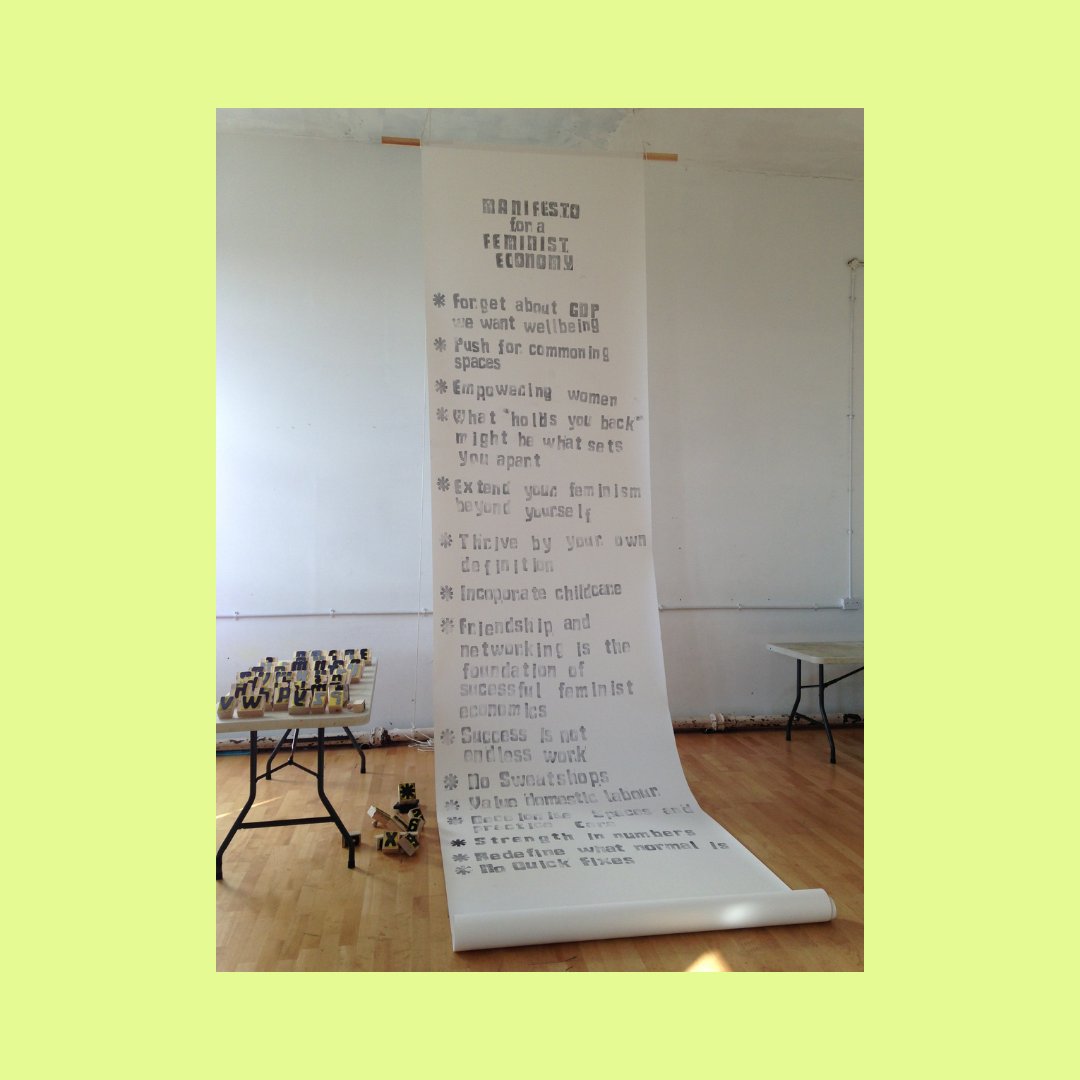 MANIFESTO
for a
FEMINIST
ECONOMY
* Forget about GDP
we want wellbeing
* Push for commoning
spaces
* Empowering women
* What "holds you back"
might be what sets
you apart
* Extend your feminism
beyond yourself
* Thrive by your own
definition
* Incoporate childcare
* Friendship and
networking is the
foundation of
sucessful feminist
economics
* Success is not
endless work
* No Sweatshops
* Value domestic labour
* Decolonise Spaces and
practice Care
* Strength in numbers
* Redefine what normal is
* No Quick fixes